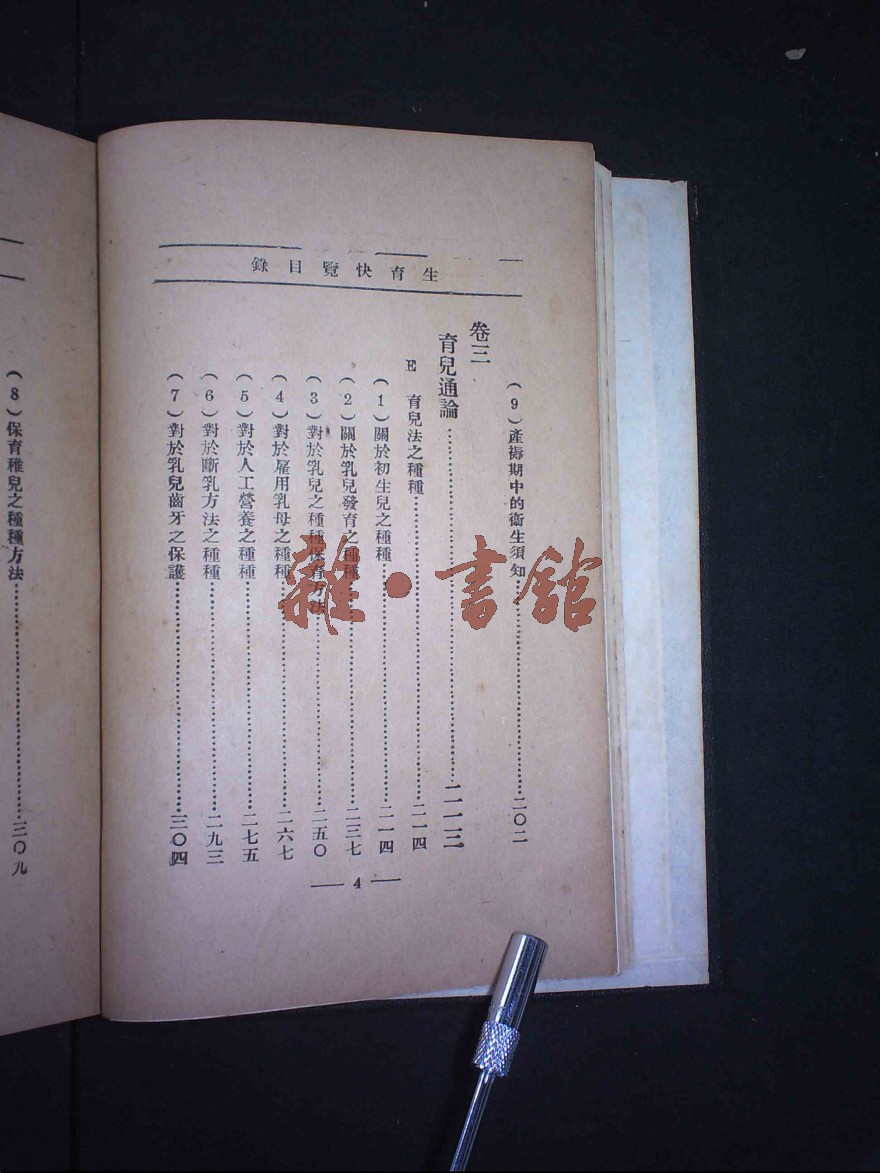 生育快覽目錄
(9)產褥期中的衞生須知……二〇二
卷三
育兒通論……二一三
E 育兒法之種種……二一四
(1)關於初生兒之種種……二一四
(2)關於乳兒發育之種種……二三七
(3)對於乳兒之種種保育方法……二五〇
(4)對於雇用乳母之種種……二六七
(5)對於人工營養之種種……二七五
(6)對於斷乳方法之種種……二九三
(7)對於乳兒齒牙之保護……三〇四
— 4 —
(8)保育稚兒之種種方法……三〇九
雜·書館